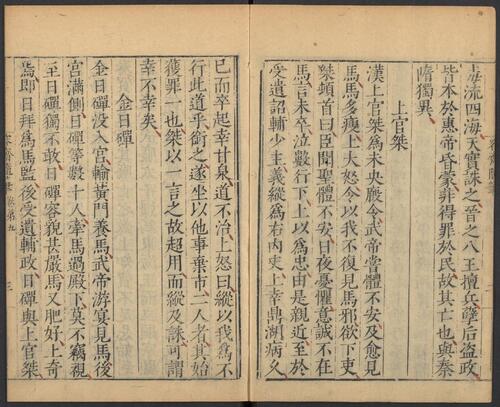 毒流四海天實誅之晉之八王擅兵孽后盜政
皆本於惠帝昏蒙非得罪於民故其亡也與秦
隋獨異
上官桀
漢上官桀為未央廄令武帝嘗體不安及愈見
馬馬多瘦上大怒令以我不復見馬邪欲下吏
桀頓首曰臣聞聖體不安日夜憂懼意誠不在
馬言未卒泣數行下上以為忠由是親近至於
受遺詔輔少主義縱為右內史上幸鼎湖病久
已而卒起幸甘泉道不治上怒曰縱以我為不
行此道乎銜之遂坐以他事棄市二人者其始
獲罪一也桀以一言之故超用而縱及誅可謂
幸不幸矣
金日磾
金日磾沒入宮輸黃門養馬武帝游宴見馬後
宮滿側日磾等數十人牽馬過殿下莫不竊視
至日磾獨不敢日磾容貌甚嚴馬又肥好上奇
焉即日拜為馬監後受遺輔政日磾與上官桀